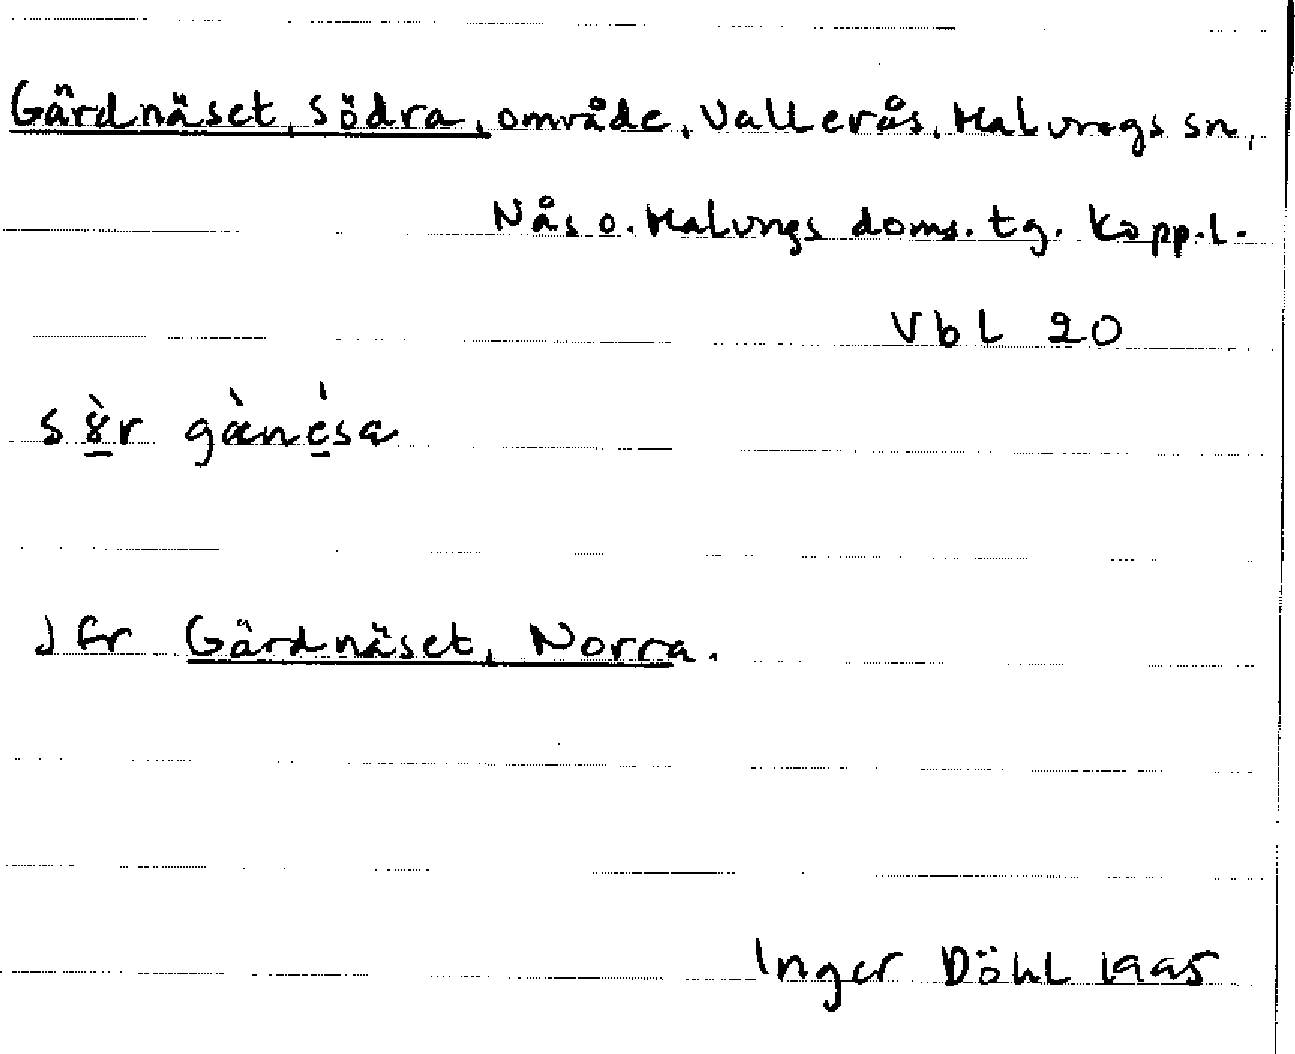 Gärdnäset, Södra, område, Vallerås, Malungs sn,
Nås o. Malungs doms. tg. Kopp.l.
Vbl 20
Jfr Gärdnäset, Norra.
Inger Döhl 1995